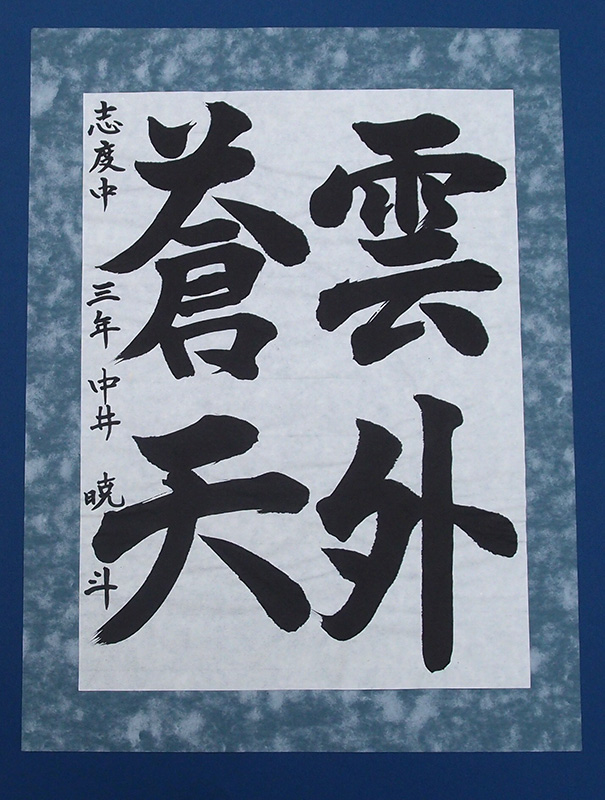 雲外
蒼天
志度中 三年 中井 暁斗